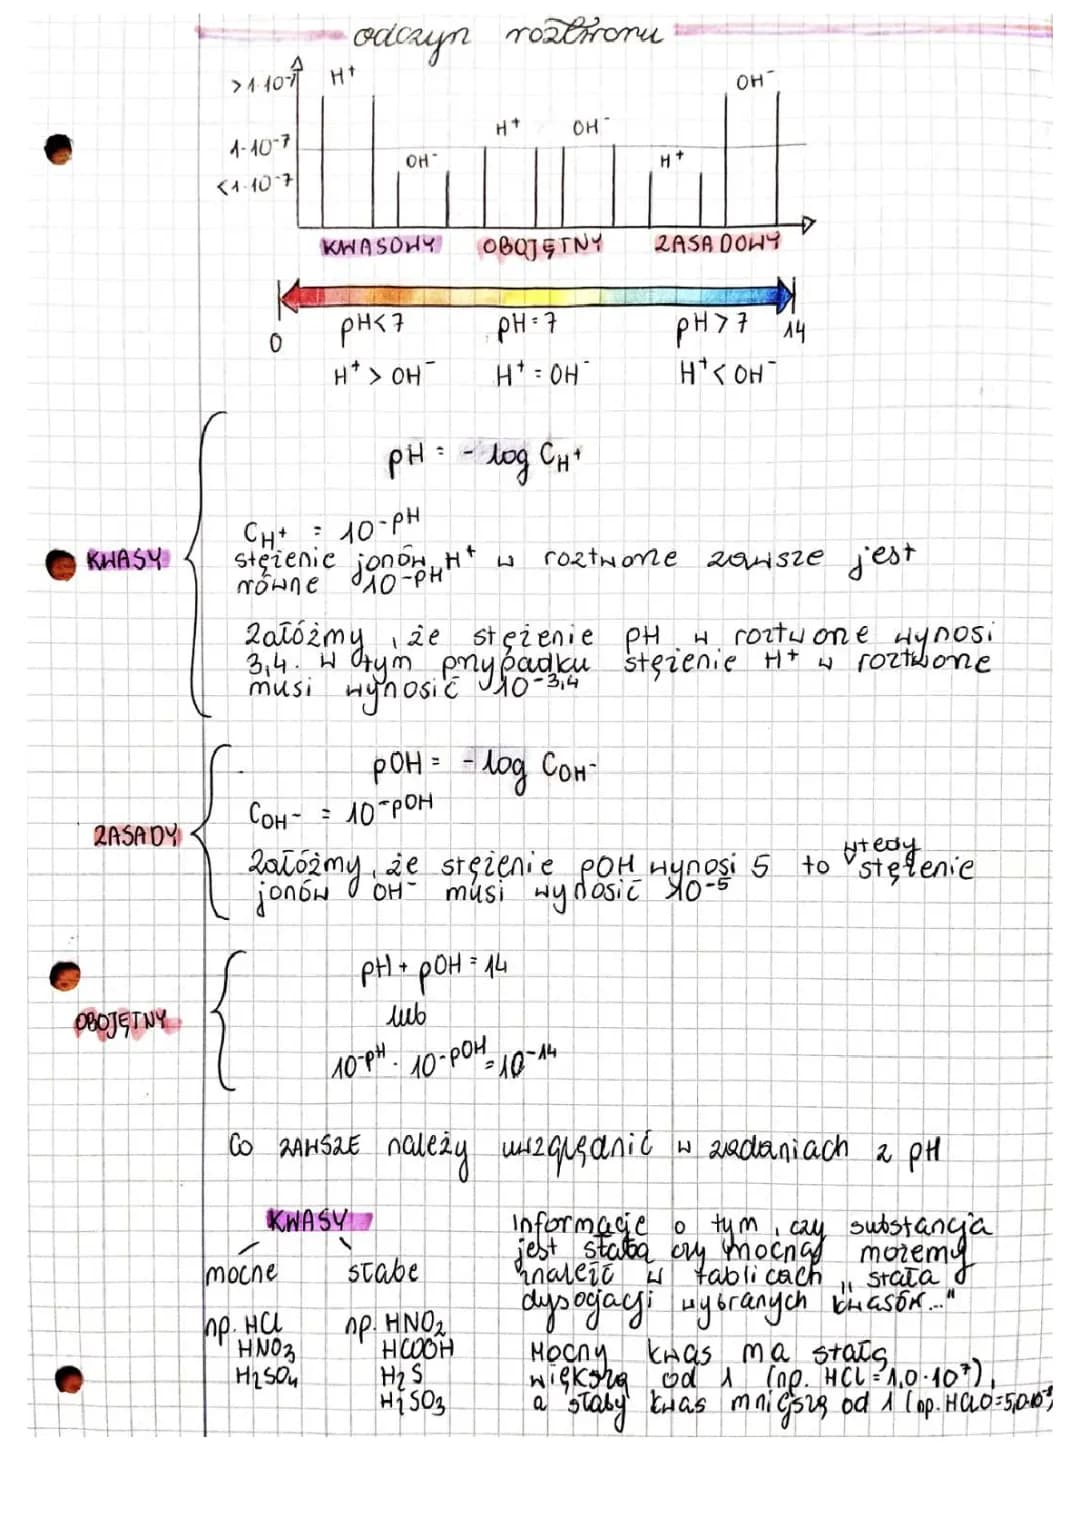 odczyn roztworu
>1·10-7 H+ OH-
1·10-7 H+ OH-
<1·10-7 OH- H+
KWASOWY OBOJĘTNY ZASADOWY
0 pH<7 pH=7 pH>7 14
H+ > OH- H+ = OH- H+ < OH-
pH = - log CH+
CH+ = 10-pH
KWASY
stężenie jonów H+ w roztworze zawsze jest
równe 10-pH
Załóżmy, że stężenie pH w roztworze wynosi
3,4. W tym przypadku stężenie H+ w roztworze
musi wynosić 10-3,4
pOH = - log COH-
COH- = 10-pOH
ZASADY
Załóżmy, że stężenie pOH wynosi 5 to wtedy stężenie
jonów OH- musi wynosić 10-5
pH + pOH = 14
OBOJĘTNY
lub
10-pH · 10-pOH = 10-14
Co ZAWSZE należy uwzględnić w zadaniach z pH
KWASY
mocne słabe
np. HCl np. HNO2
HNO3 HCOOH
H2SO4 H2S
H2SO3
Informację o tym, czy substancja
jest słaba czy mocna możemy
znaleźć w tablicach "stała
dysocjacji wybranych kwasów..."
Mocny kwas ma stałą
większą od 1 (np. HCl = 1,0·107),
a słaby kwas mniejszą od 1 (np. HClO=5,0·10-8)